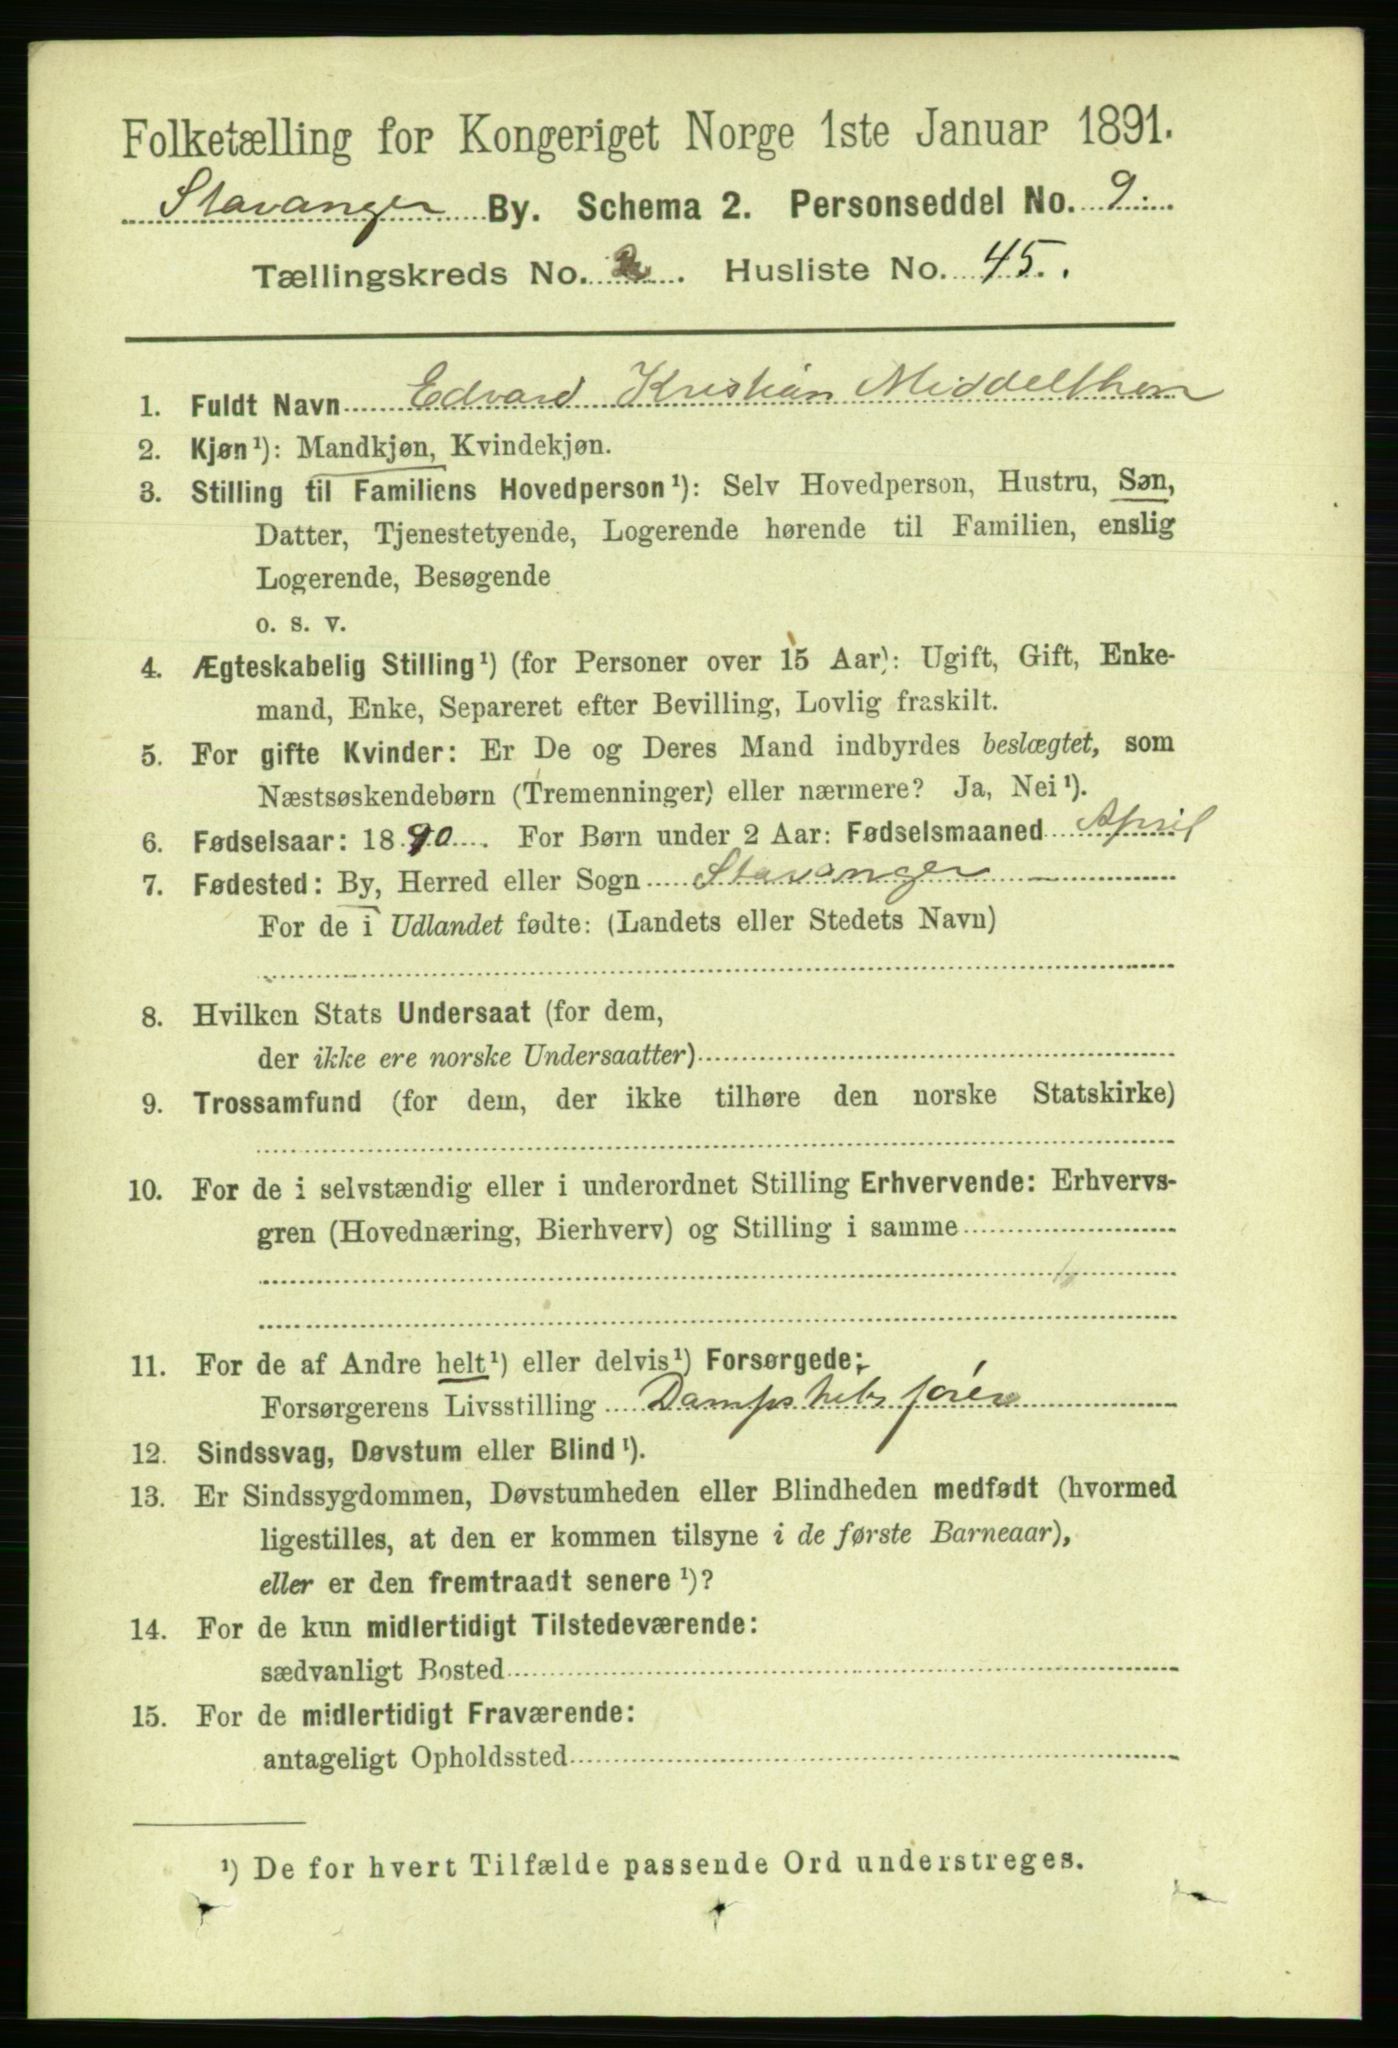 Folketælling for Kongeriget Norge 1ste Januar 1891.
Stavanger By. Schema 2. Personseddel No. 9.
Tællingskreds No. 2. Husliste No. 45.
1. Fuldt Navn Edvard Kristian Middelthon
2. Kjøn¹): Mandkjøn, Kvindekjøn.
3. Stilling til Familiens Hovedperson¹): Selv Hovedperson, Hustru, Søn,
Datter, Tjenestetyende, Logerende hørende til Familien, enslig
Logerende, Besøgende
o. s. v.
4. Ægteskabelig Stilling¹) (for Personer over 15 Aar): Ugift, Gift, Enke-
mand, Enke, Separeret efter Bevilling, Lovlig fraskilt.
5. For gifte Kvinder: Er De og Deres Mand indbyrdes beslægtet, som
Næstsøskendebørn (Tremenninger) eller nærmere? Ja, Nei¹).
6. Fødselsaar: 1890. For Børn under 2 Aar: Fødselsmaaned April
7. Fødested: By, Herred eller Sogn Stavanger
For de i Udlandet fødte: (Landets eller Stedets Navn)
8. Hvilken Stats Undersaat (for dem,
der ikke ere norske Undersaatter)
9. Trossamfund (for dem, der ikke tilhøre den norske Statskirke)
10. For de i selvstændig eller i underordnet Stilling Erhvervende: Erhvervs-
gren (Hovednæring, Bierhverv) og Stilling i samme
11. For de af Andre helt¹) eller delvis¹) Forsørgede:
Forsørgerens Livsstilling Dampskibsfører
12. Sindssvag, Døvstum eller Blind¹).
13. Er Sindssygdommen, Døvstumheden eller Blindheden medfødt (hvormed
ligestilles, at den er kommen tilsyne i de første Barneaar),
eller er den fremtraadt senere¹)?
14. For de kun midlertidigt Tilstedeværende:
sædvanligt Bosted
15. For de midlertidigt Fraværende:
antageligt Opholdssted
¹) De for hvert Tilfælde passende Ord understreges.